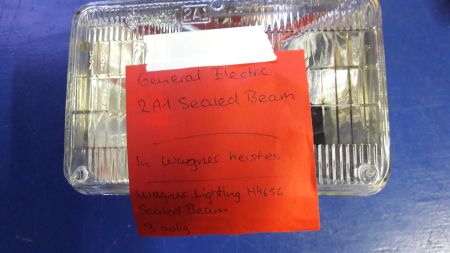 2A1
General Electric
2A1 Sealed Beam
In Wagner heistes
Wagner Lighting H4656
Sealed Beam
3 polig